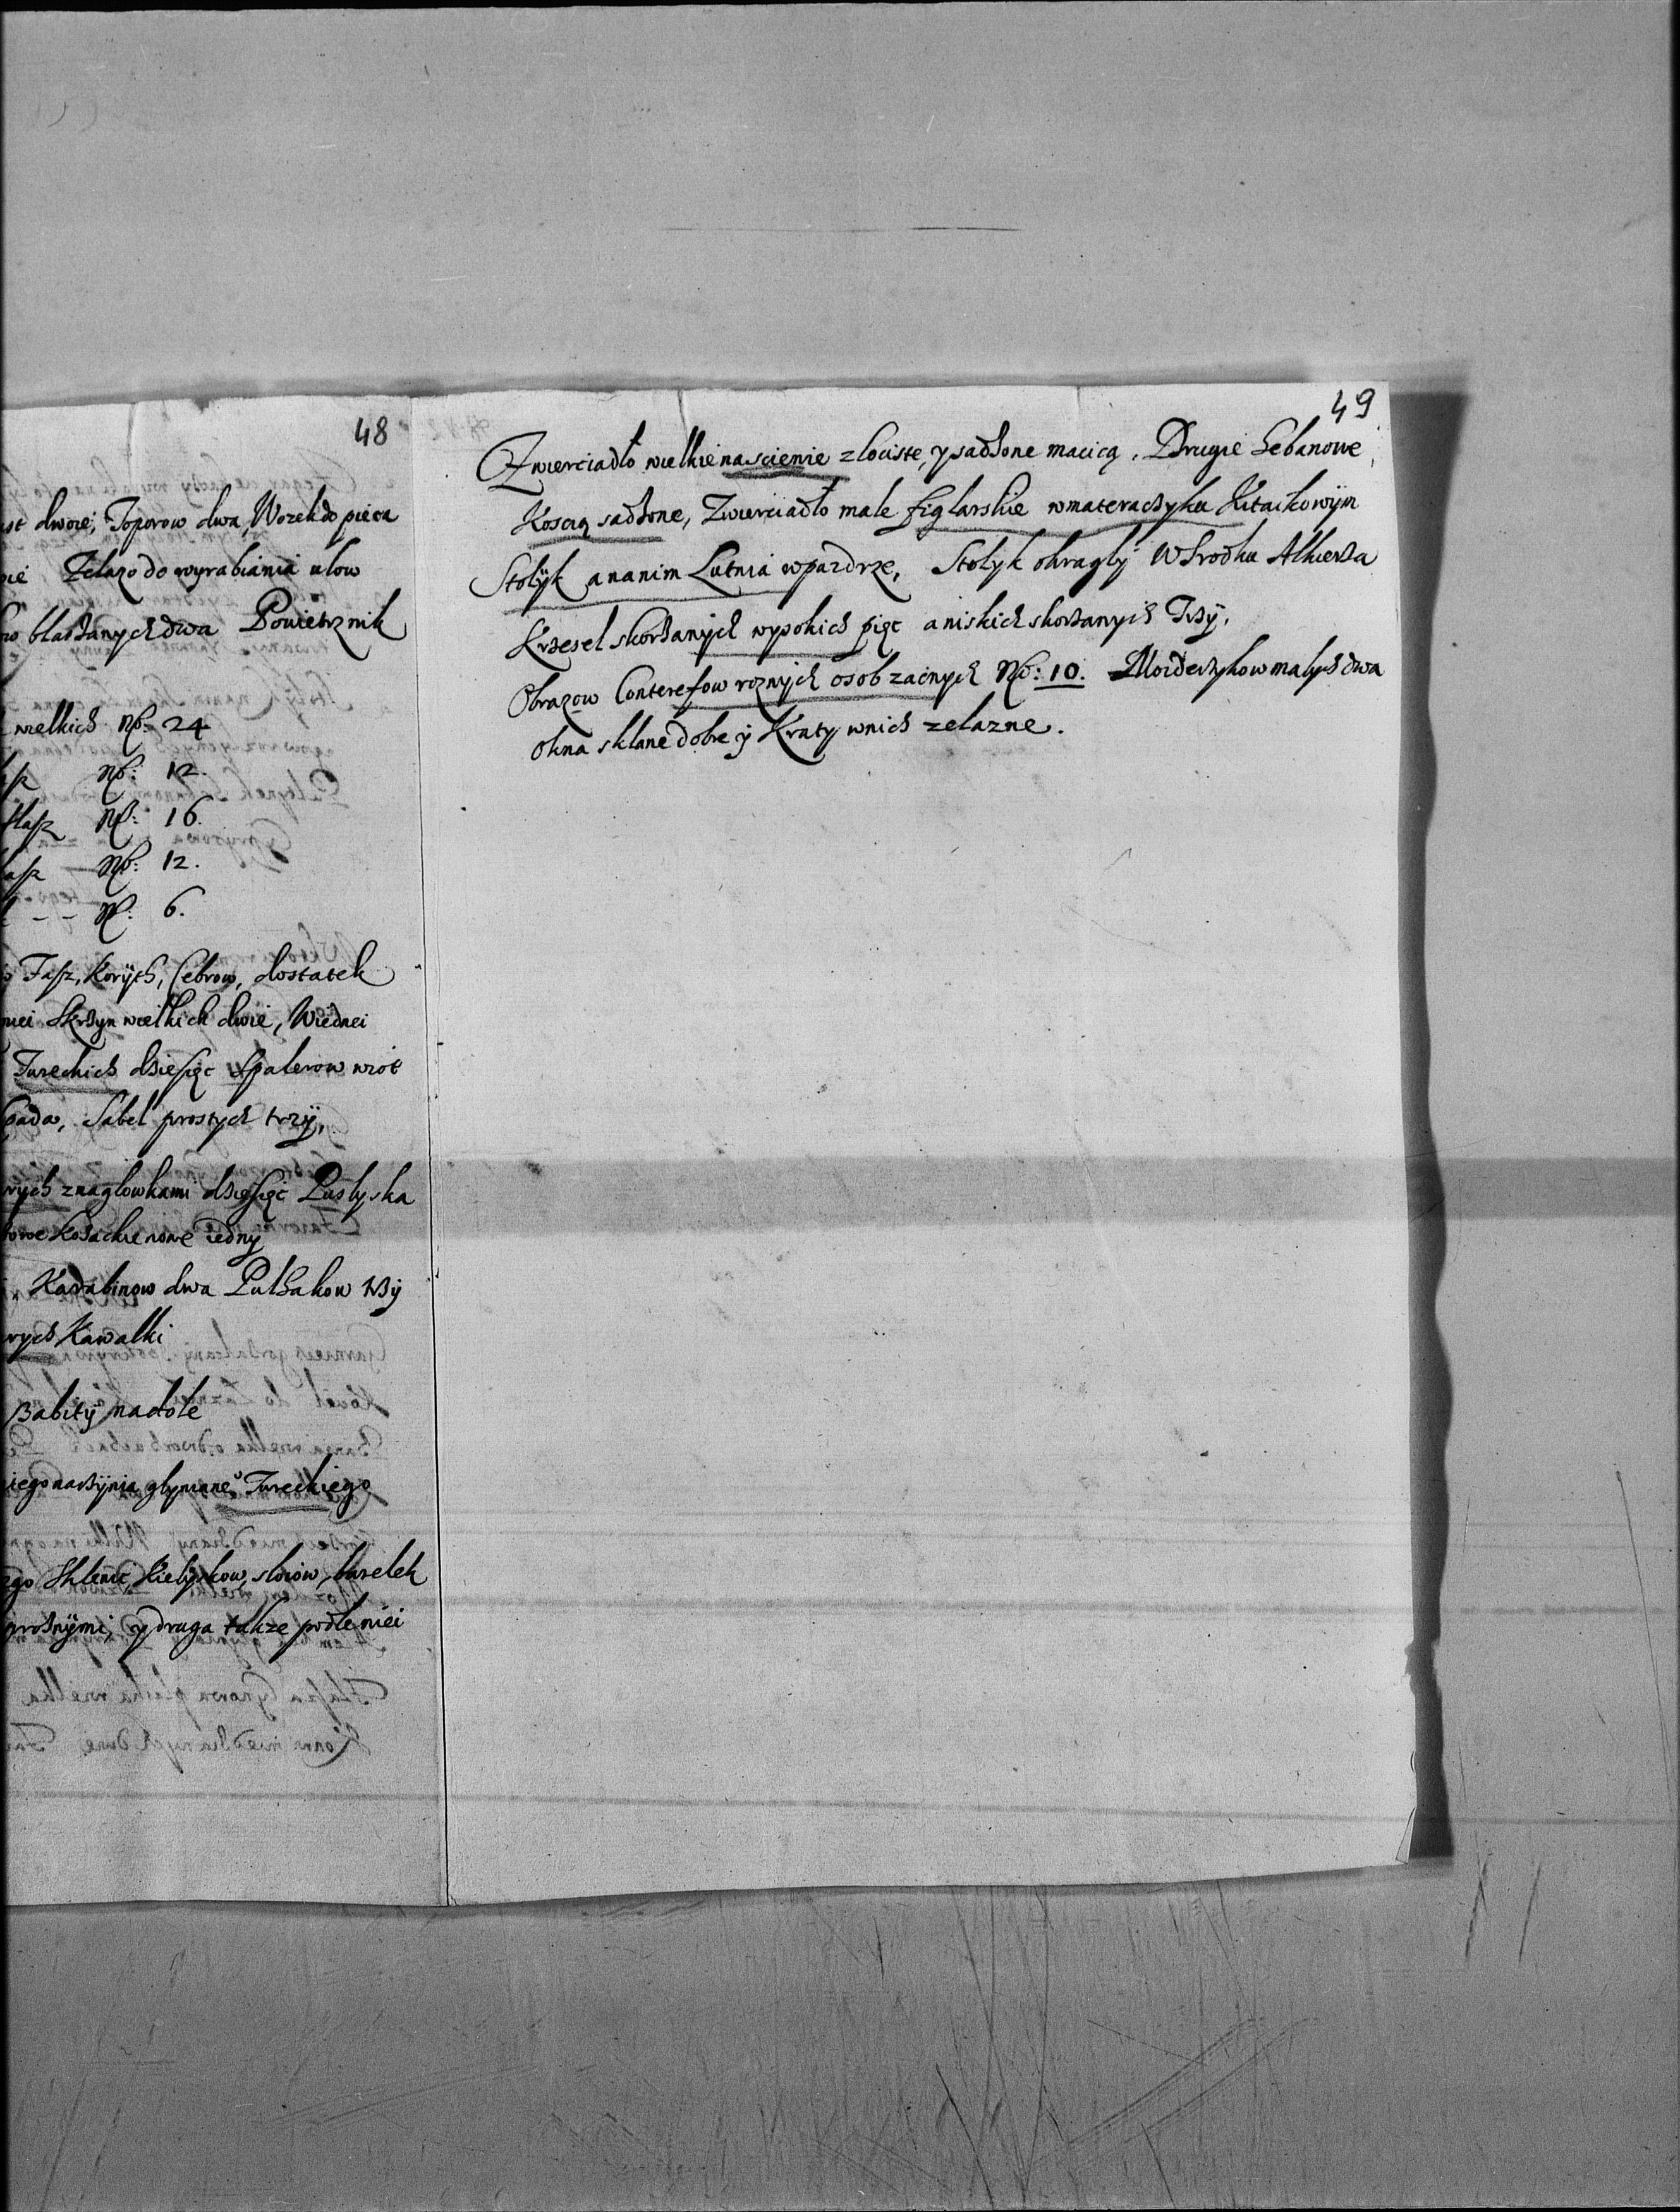 48
dwoie, Toporow dwa, Wozek do pieca
Zelazo do wyrabiania ulow
blaszanych dwa Powietrznik
wielkich No: 24
No: 12.
No: 16.
No: 12.
No: 6.
Fasz, Koryth, Cebrow, dostatek
Skrzyn wielkich dwie, Wiednei
Tureckich dziesięc Spalerow
Sabel prostych trzÿ,
znaglowkami dziesięc Puslyska
Kozackie nowe iedny
Karabinow dwa Pulhakow trzÿ
Kawalki
Babitÿ nadole
naczÿnia glyniane Tureckiego
Sklenic, Kielyskow, sloiow, barelek
prosnÿmi, y druga takze podle niei
49
Zwierciadło wielkie nascienie zlociste, y sadzone macicą. Drugie Hebanowe
Koscią sadzone, Zwierciadło male figlarskie wmateraczyku Kitaikowÿm
Stolÿk ananim Lutnia wpuzdrze, Stolyk okraglÿ WSrodku Alkierza
Krzesel skorzanÿch wysokich pięc aniskich skorzanych Trzÿ.
Obrazow Conterefow roznÿch osob zacnych No: 10. Mozderzykow malych dwa
Okna sklane dobre ÿ Kraty wnich zelazne.